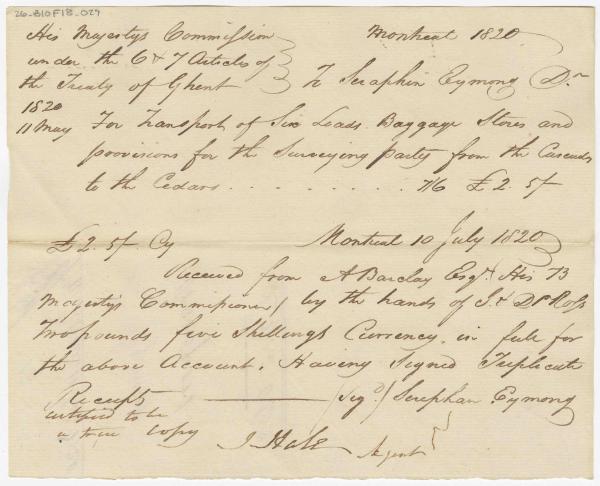 26-B10F18-029
His Majestys Commission Montreal 1820
under the 6 & 7 Articles of
the Treaty of Ghent To Seraphin Eymong Dr
1820
11 May For Transport of Six Loads Baggage Stores and
provisions for the Surveying party from the Cascades
to the Cedars . . . . . . . . . . 7/6 £2.5/-
£2.5/- Cy Montreal 10 July 1820
Received from A Barclay Esqr. His B
Majestys Commissioner / by the hands of J & D Ross
Two pounds five Shillings Currency in full for
the above Account. Having Signed Triplicate
Receipts (Sigd) Seraphin Eymong
certified to be
a true copy J Hale Agent